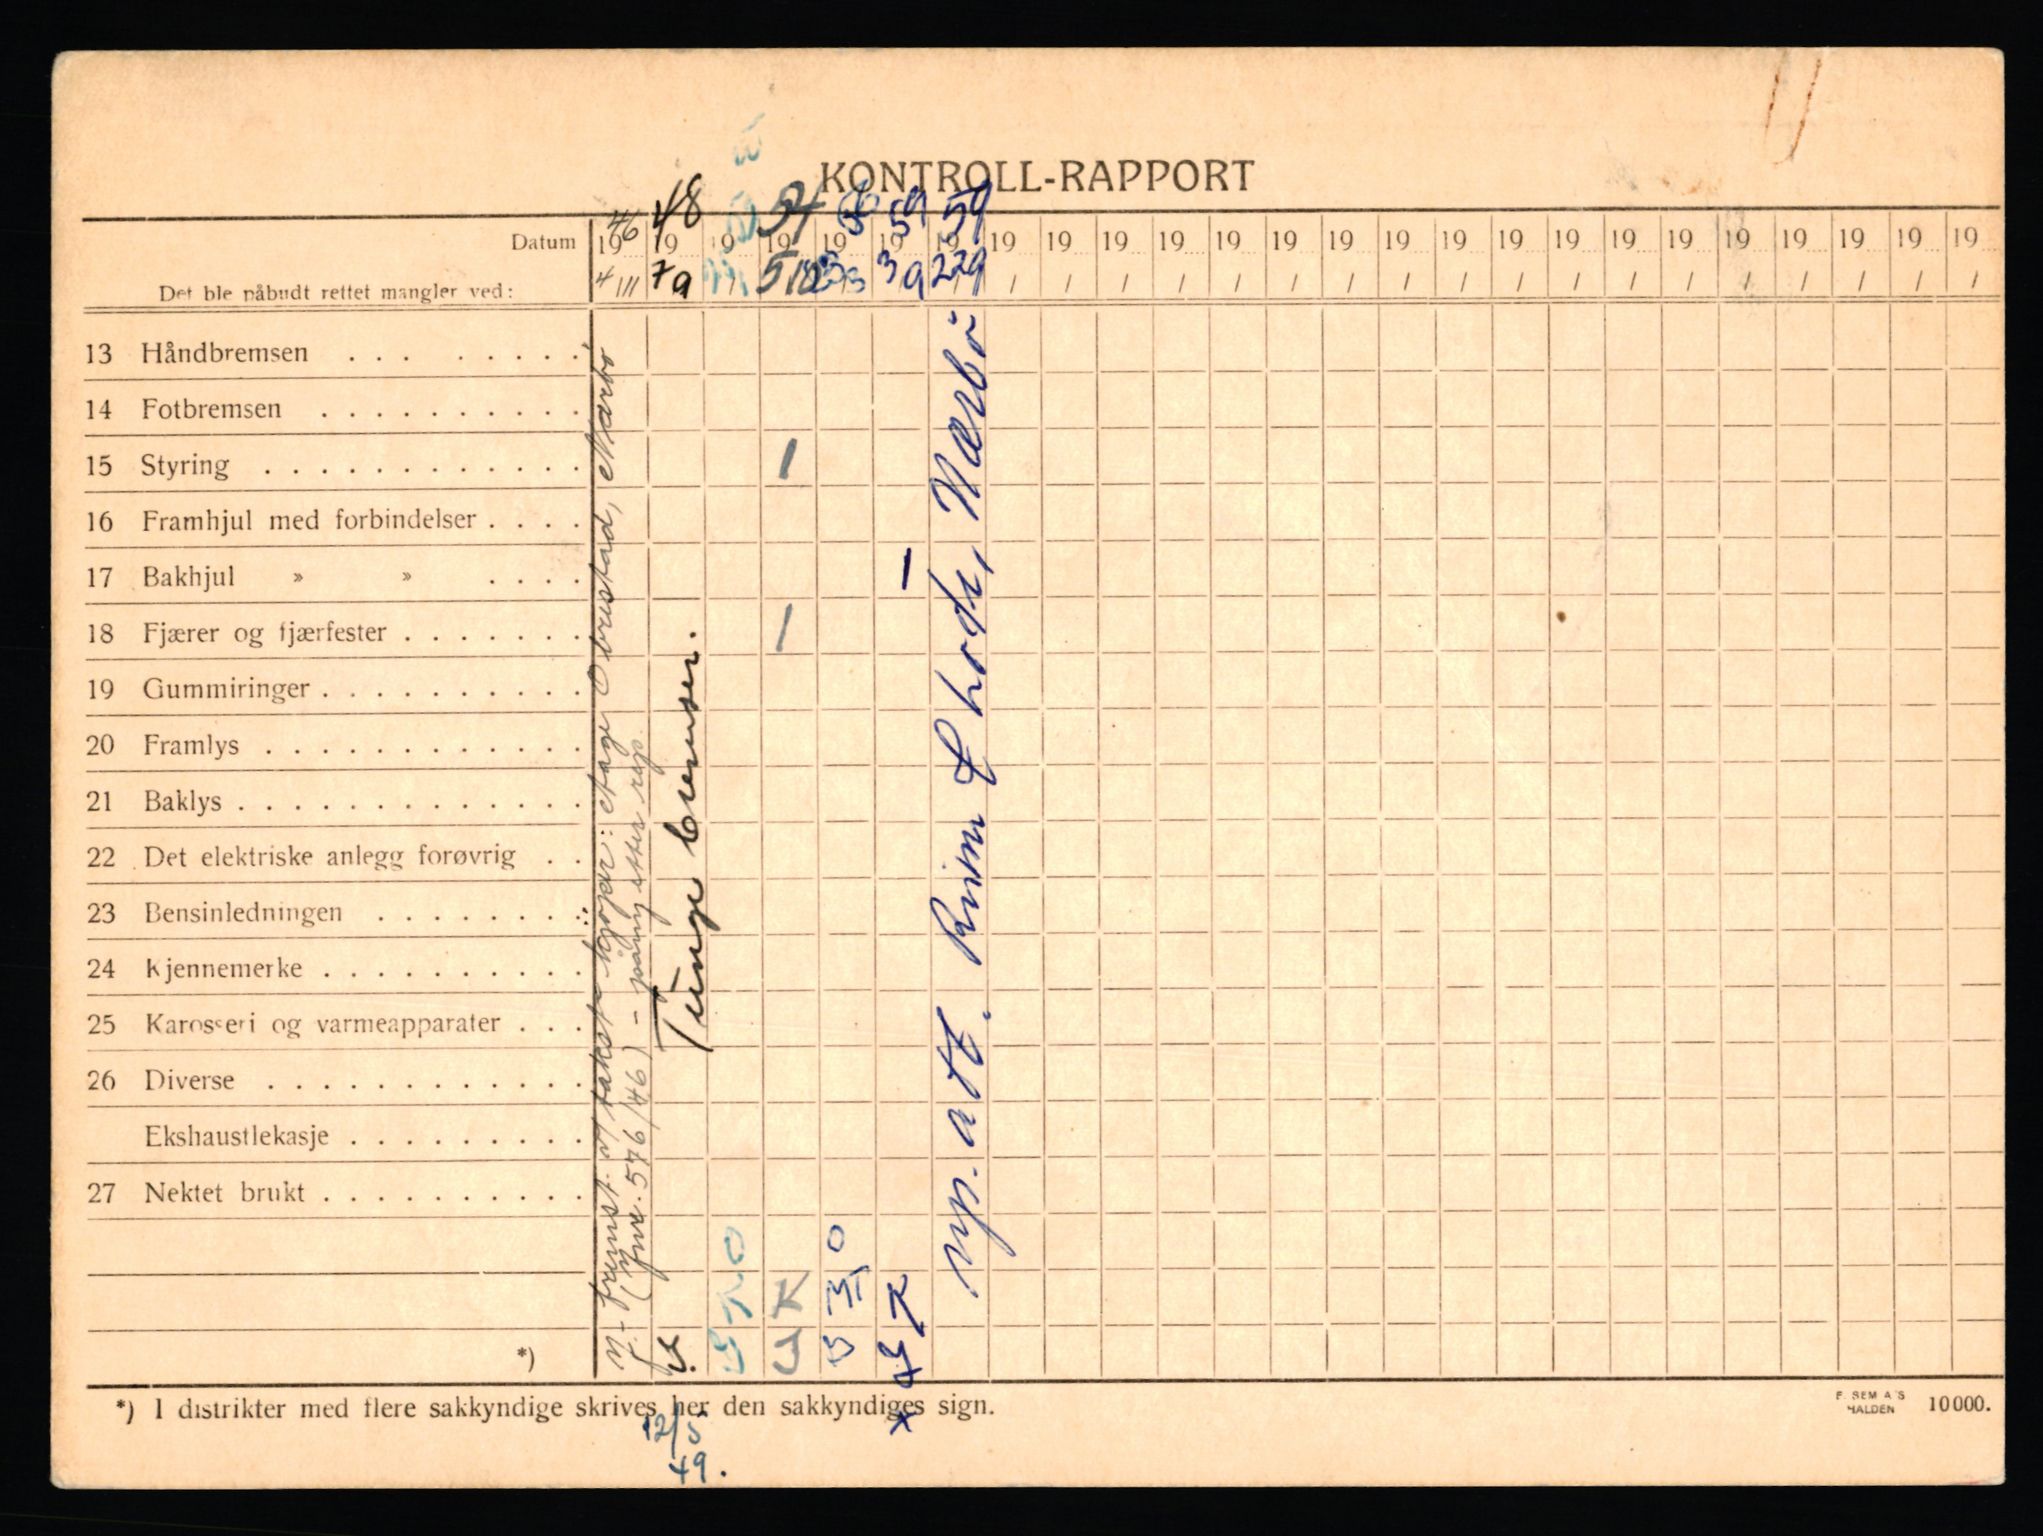 KONTROLL-RAPPORT
Datum 19 46 19 48 19 19 54 19 56 19 59 19 59 19 19 19 19 19 19 19 19 19 19 19 19 19 19 19 19 19 19
Det ble påbudt rettet mangler ved: 4/11 7/9 / 5/10 3/9 22/9 / / / / / / / / / / / / / / / / / /
13 Håndbremsen . . . . . . . .
14 Fotbremsen . . . . . . . . . .
15 Styring . . . . . . . . . . . . 1
16 Framhjul med forbindelser . . . .
17 Bakhjul » » . . . . 1
18 Fjærer og fjærfester . . . . . . . 1
19 Gummiringer . . . . . . . . . .
20 Framlys . . . . . . . . . . . .
21 Baklys . . . . . . . . . . . . .
22 Det elektriske anlegg forøvrig . .
23 Bensinledningen . . . . . . . .
24 Kjennemerke . . . . . . . . . .
25 Karosseri og varmeapparater . . .
26 Diverse . . . . . . . . . . . .
Ekshaustlekasje . . . . . . . . .
27 Nektet brukt . . . . . . . . . .
*)
(jnr. 576/46) - påny etter rep.
Tunge bremser.
Rvp. att. Rüim & hodt, Nærbö
*) I distrikter med flere sakkyndige skrives her den sakkyndiges sign.
F. SEM A'S
HALDEN
10000.
12/5
49.